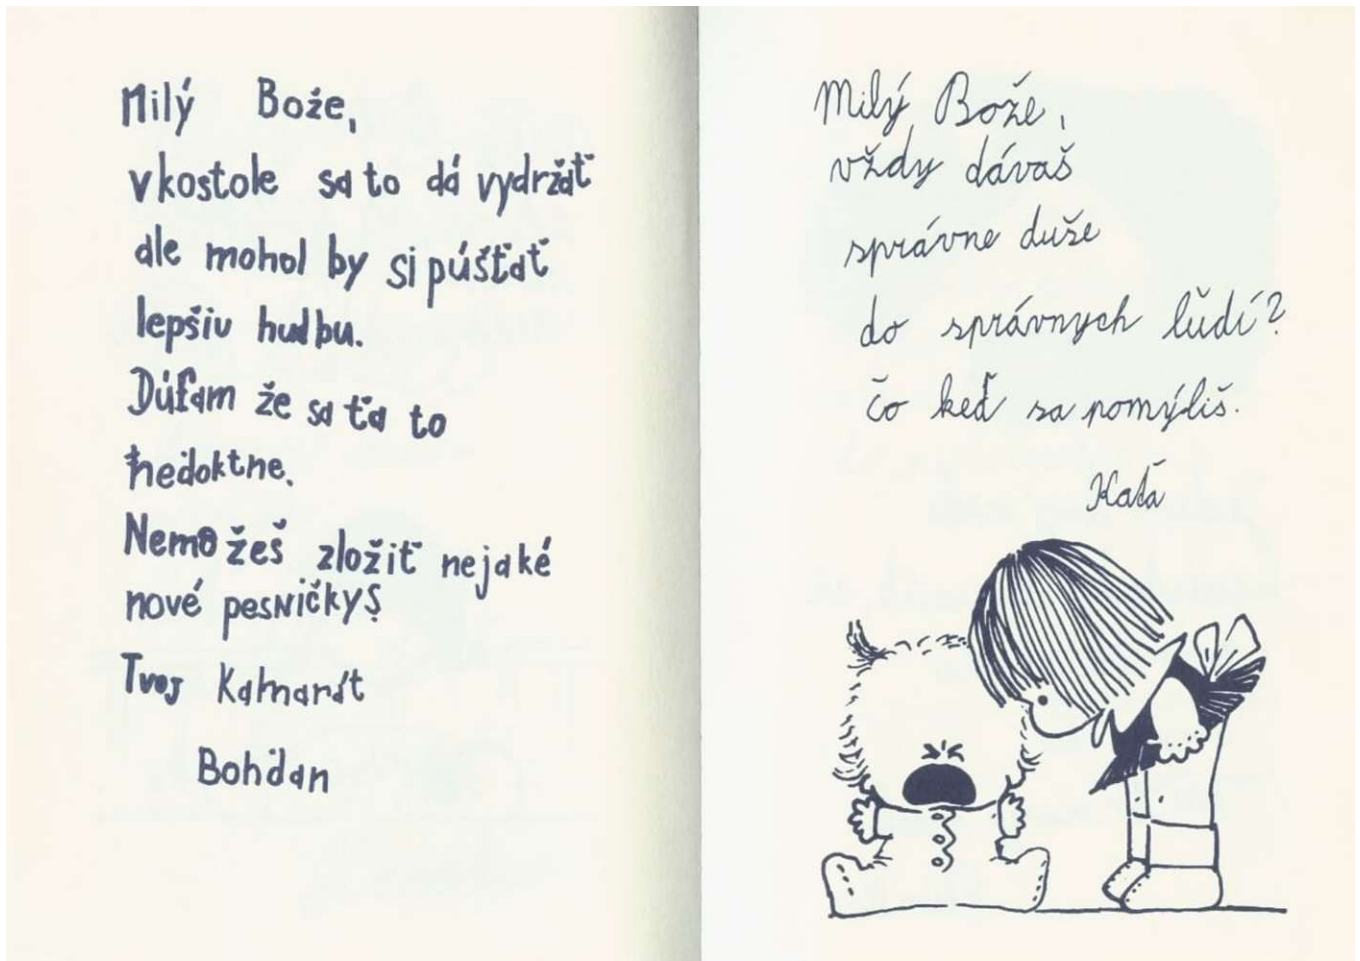 Milý Bože,
v kostole sa to dá vydržať
ale mohol by si púšťať
lepšiu hudbu.
Dúfam že sa ťa to
nedoktne.
Nemožeš zložiť nejaké
nové pesničkyS
Tvoj Kamarát
Bohdan
Milý Bože,
vždy dávaš
správne duše
do správnych ľudí?
čo keď sa pomýliš.
Kaťa